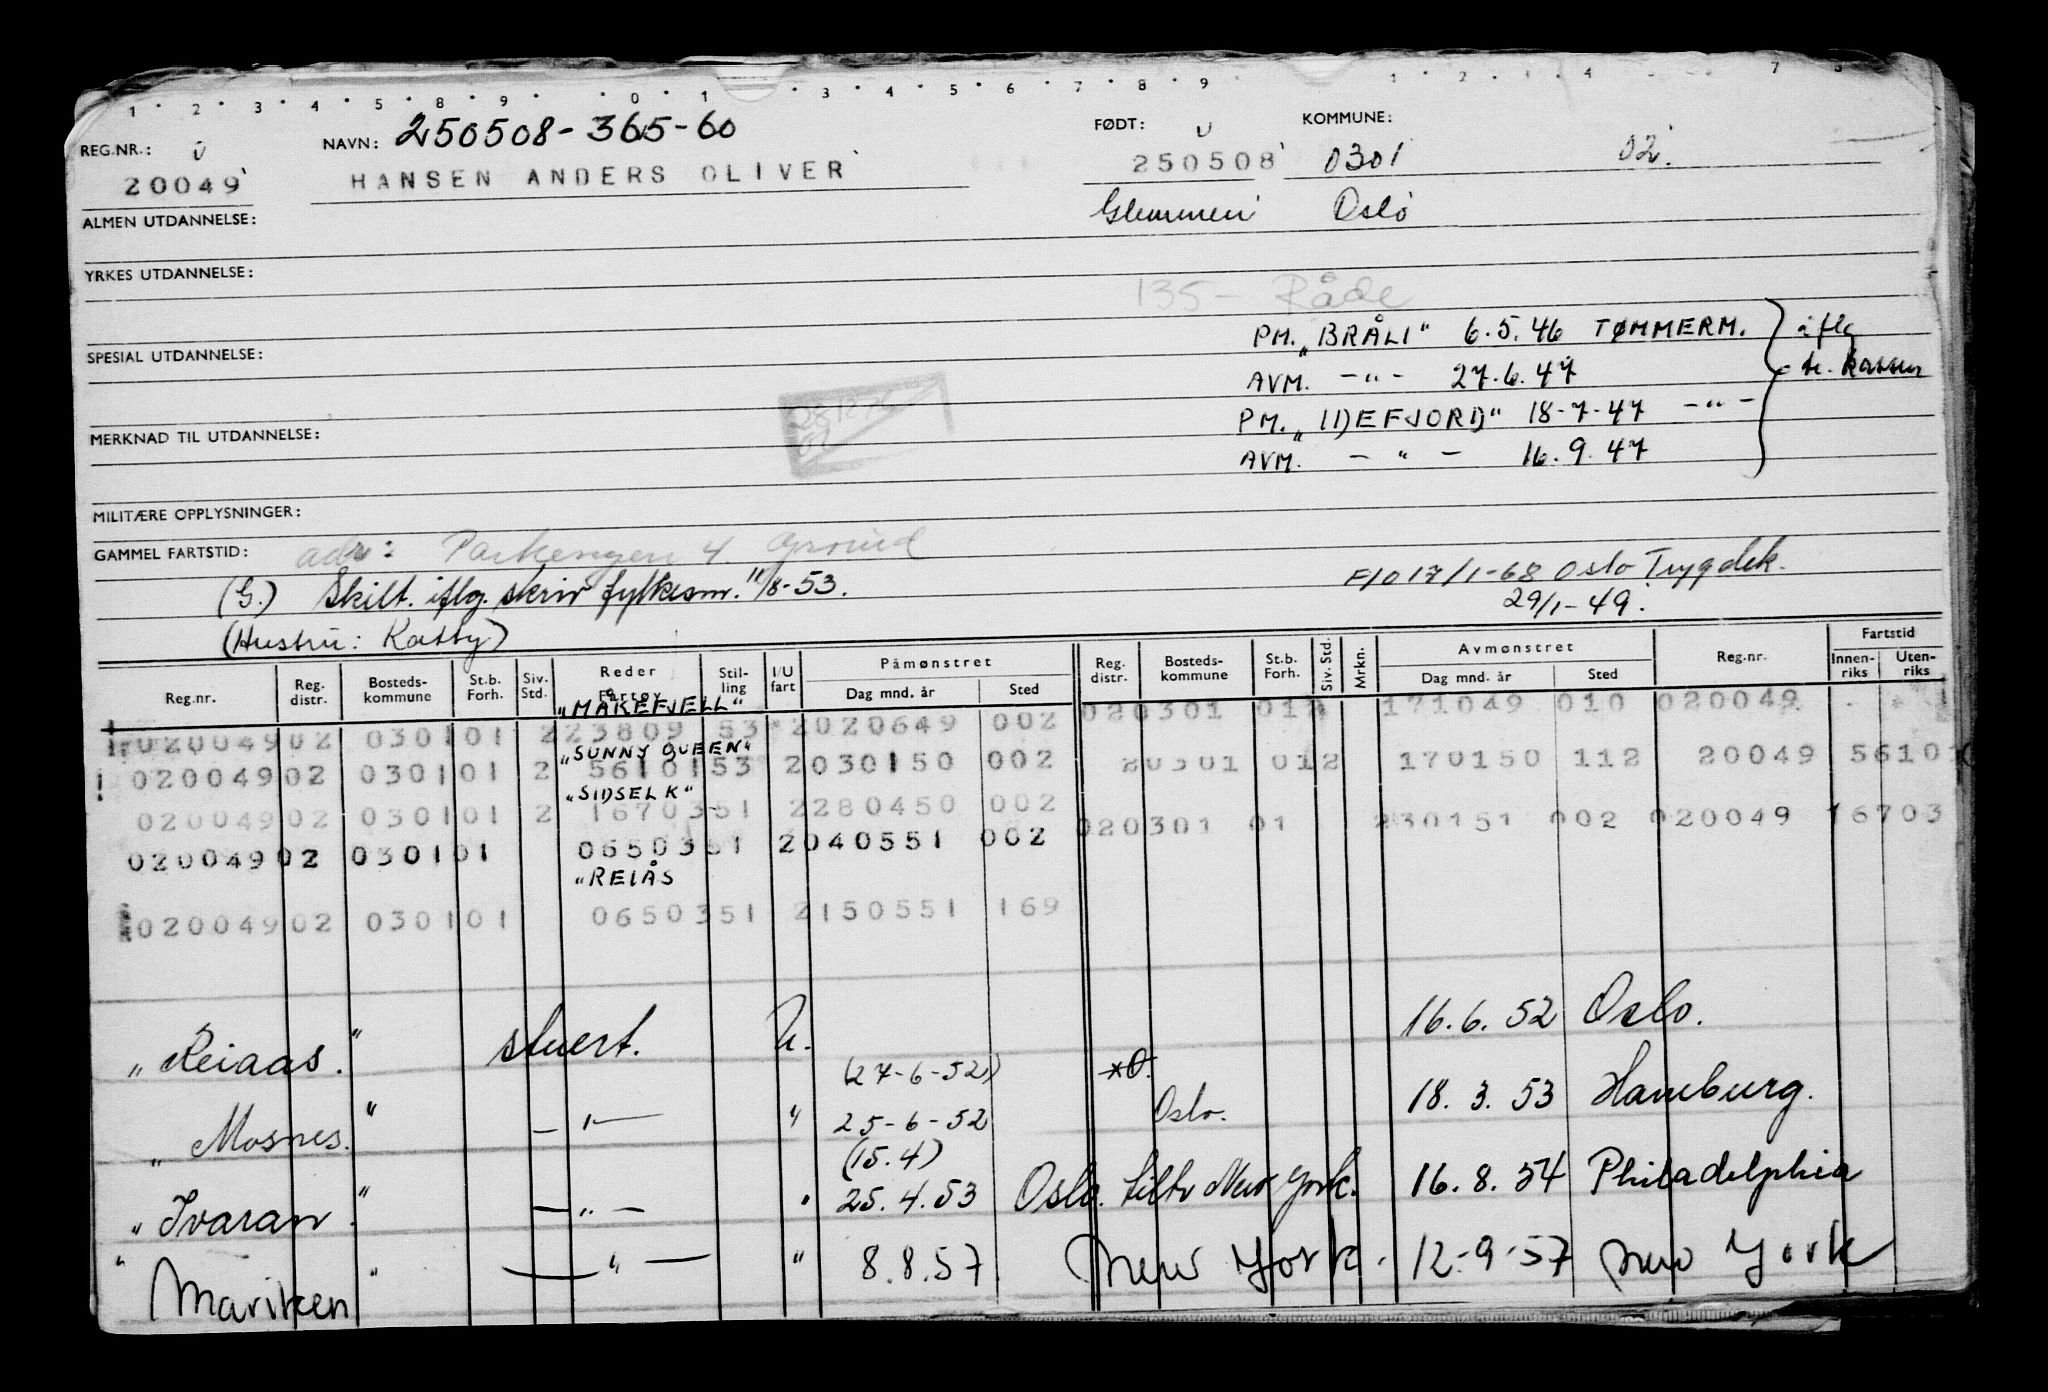 1 · 2 · 3 · 4 · 5 · 8 · 9 · 0 · 1 · 3 · 4 · 5 · 6 · 7 · 8 · 9 · 1 · 2 · 4 7
REG.NR.: NAVN: 250508-365-60 FØDT: KOMMUNE:
20049 HANSEN ANDERS OLIVER 250508 0301 02.
ALMEN UTDANNELSE: Glemmen Oslo
YRKES UTDANNELSE:
135 - Råde
PM. „BRÅLI" 6.5.46 TØMMERM. iflg
SPESIAL UTDANNELSE:
AVM. -"- 27.6.47
PM. „IDEFJORD" 18-7-47 -"-
MERKNAD TIL UTDANNELSE:
AVM. - " - 16.9.47
MILITÆRE OPPLYSNINGER:
GAMMEL FARTSTID: adr: Parkengen 4.
(G.) Skilt. iflg. skriv fylkesm. 11/8-53. F/O 17/1-68 Oslo Trygdek.
29/1-49.
(Hustru: Kathy)
Reg.nr. Reg. distr. Bosteds-kommune St.b. Forh. Siv. Std. Reder Fartøy Stil-ling I/U fart Påmønstret Dag mnd. år Sted Reg. distr. Bosteds-kommune St.b. Forh. Siv. Std. Mrkn. Avmønstret Dag mnd. år Sted Reg.nr. Fartstid Innen-riks Uten-riks
„MAKEFJELL"
020049 02 0301 01 2 23809 53 2 020649 002 02 0301 01 2 171049 010 020049
„SUNNY QUEEN"
020049 02 0301 01 2 56101 53 2 030150 002 2 0301 01 2 170150 112 20049 56101
„SIDSEL K"
020049 02 0301 01 2 16703 51 2 280450 002 02 0301 01 230151 002 020049 16703
020049 02 0301 01 06503 51 2 040551 002
„REIÅS
020049 02 0301 01 06503 51 2 150551 169
„Reiaas." stuert. U. 16.6.52 Oslo.
(27-6-52)
„Mosnes." - " - " 25-6-52 Oslo. 18.3.53 Hamburg.
(15.4)
„Ivaran." - " - " 25.4.53 Oslo. tiltr New York. 16.8.54 Philadelphia
"Mariken" - " - " 8.8.57 New York. 12-9-57 New York